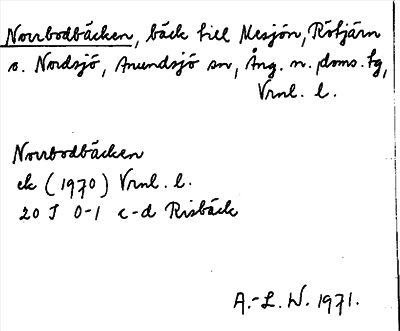 Norrbodbäcken, bäck till Mesjön, Rötjärn
o. Nordsjö, Anundsjö sn, Ång. n. doms. fg,
Vrnl. l.
Norrbodbäcken
ek (1970) Vrnl. l.
20 J 0-1 c-d Risbäck
A.-L. W. 1971.